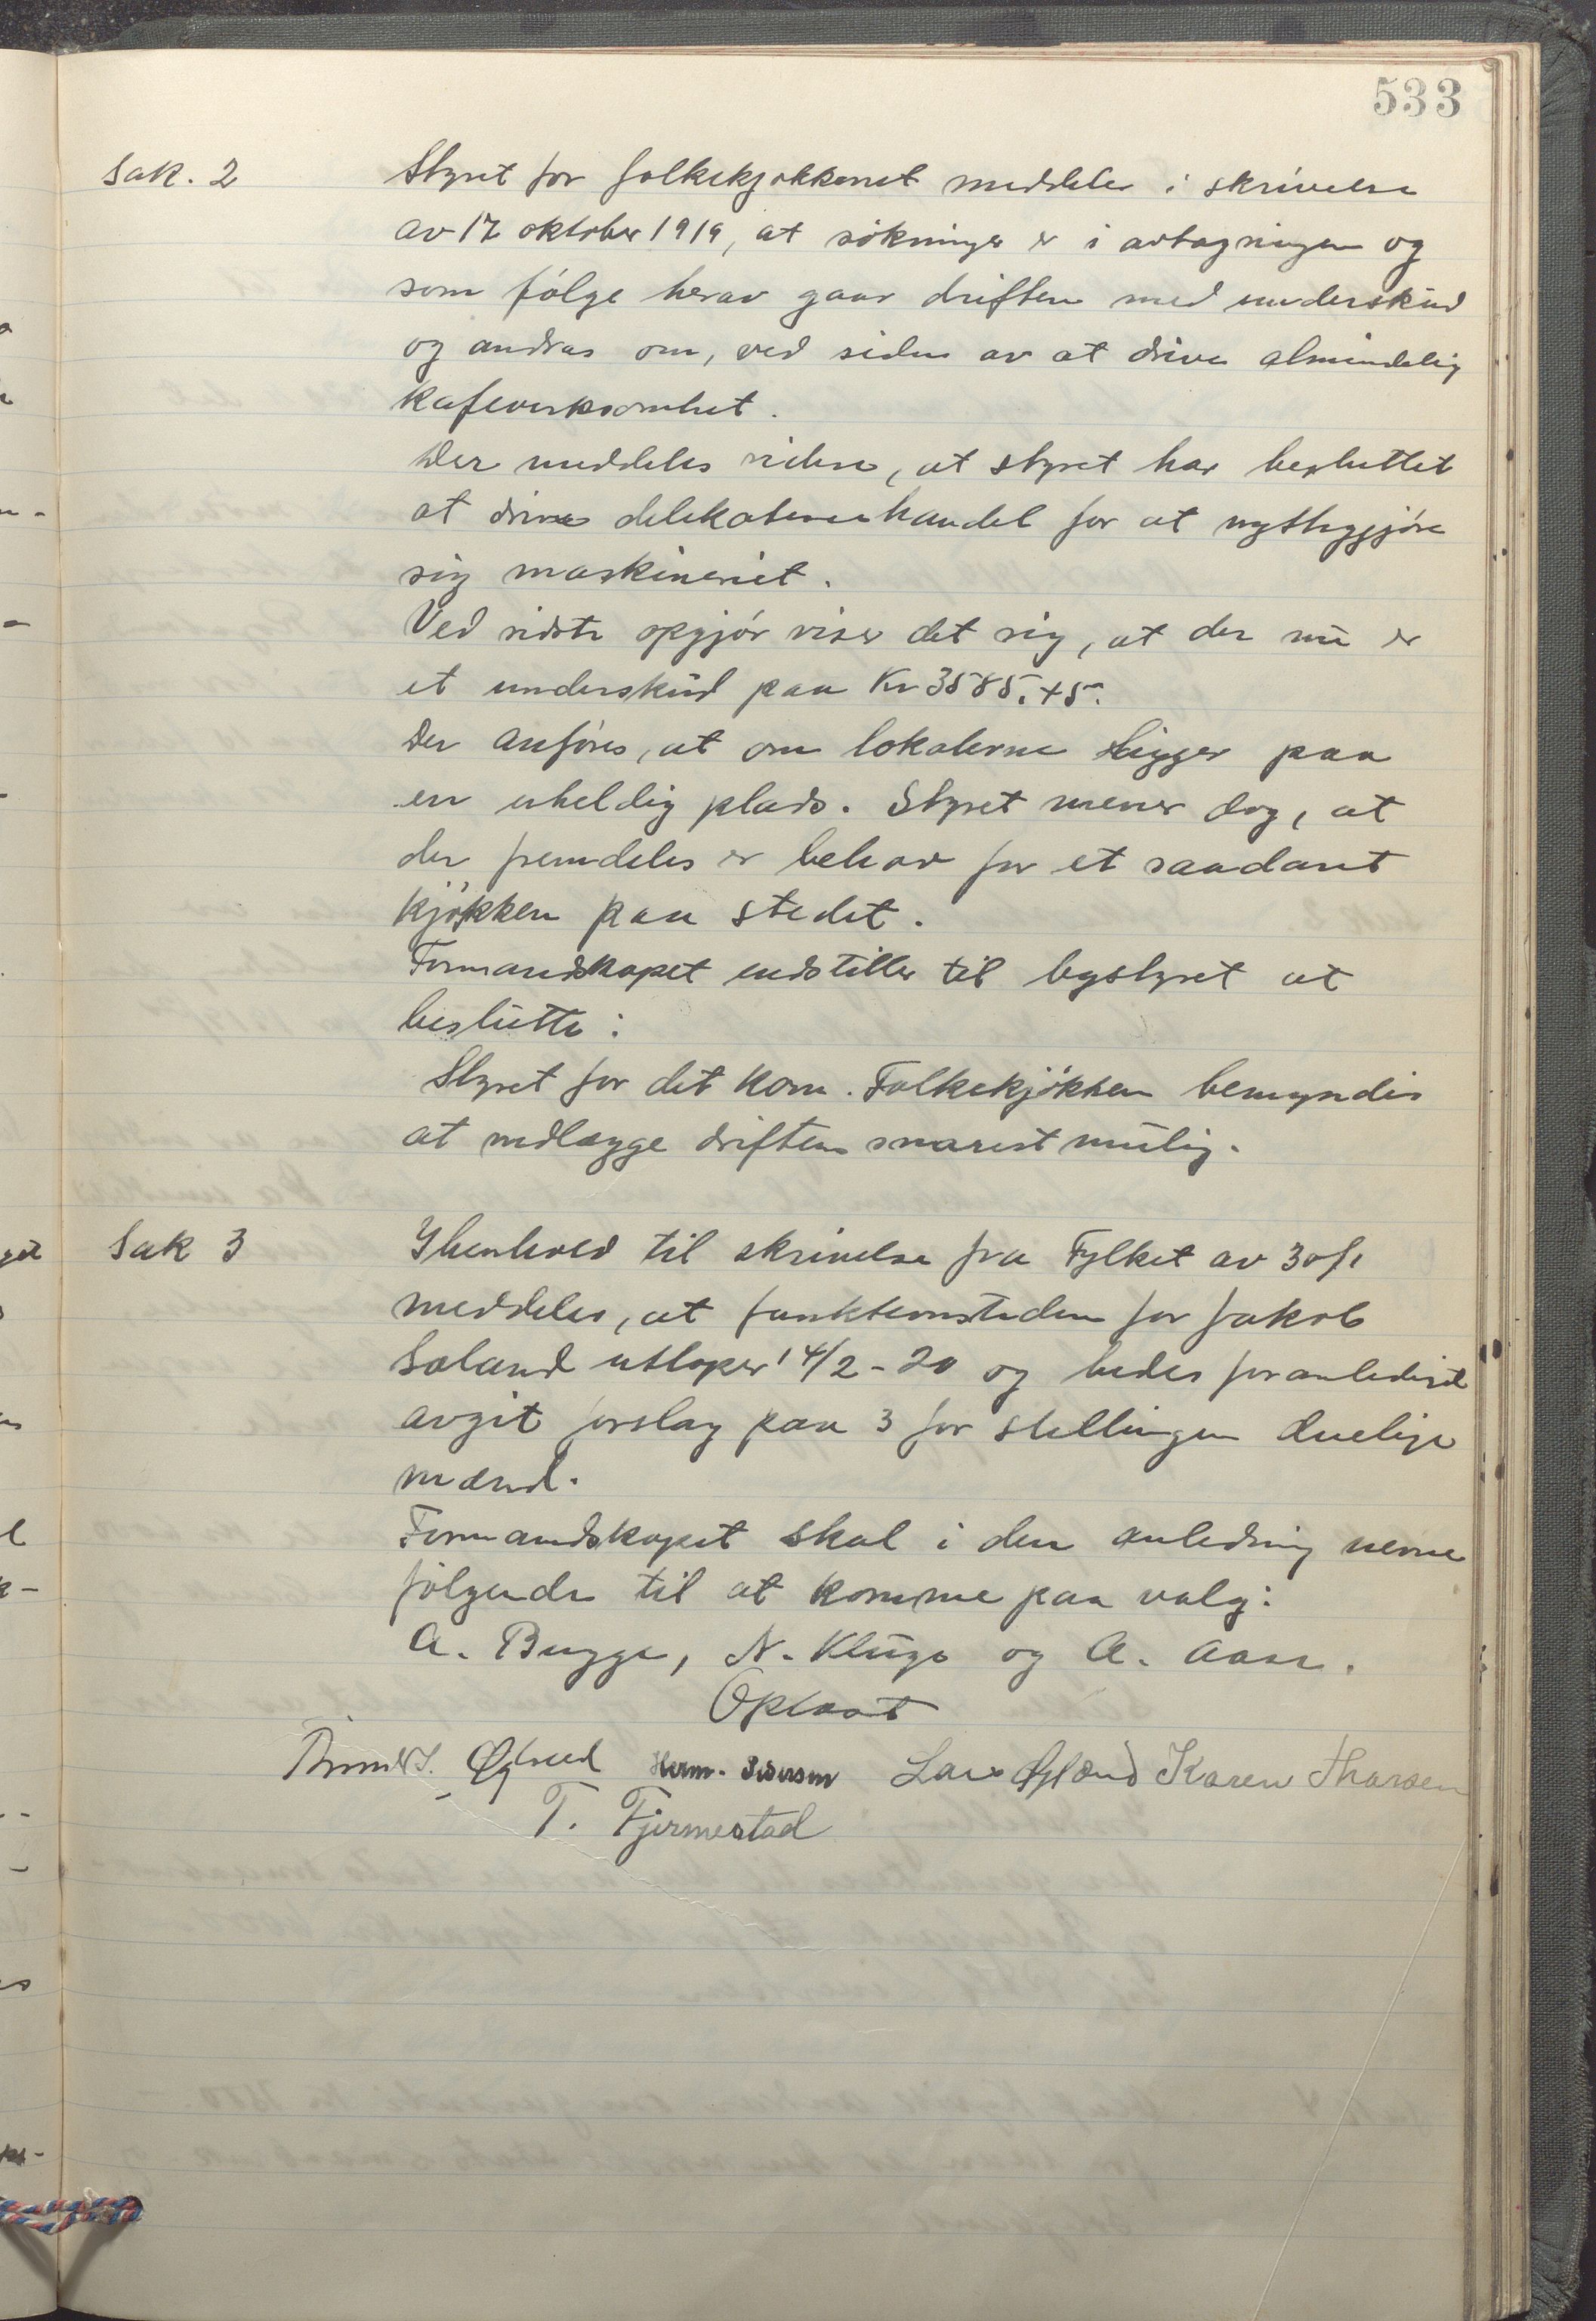 533
Sak. 2 Styret for folkekjøkkenet meddeler i skrivelse
av 17 oktober 1919, at søkninger er i avtagningen og
som følge herav gaar driften med underskud
og andras om, ved siden av at drive almindelig
kafevirksomhet.
Der meddeles videre, at styret har besluttet
at drive delikatessehandel for at nyttiggjøre
sig maskineriet.
Ved sidste opgjør viser det sig, at der nu er
et underskud paa Kr 3585.45.
Der anføres, at om lokalerne ligger paa
en uheldig plads. Styret mener dog, at
der fremdeles er behov for et saadant
kjøkken paa stedet.
Formandskapet indstiller til bystyret at
beslutte:
Styret for det kom. Folkekjøkken bemyndies
at nedlægge driften snarest mulig.
Sak 3 I henhold til skrivelse fra Fylket av 30/1
meddeles, at funktionstiden for Jakob
Søland utløper 14/2-20 og bedes foranlediget
avgit forslag paa 3 for stillingen duelige
mænd.
Formandskapet skal i den anledning nevne
følgende til at komme paa valg:
A. Bugge, N. Kluge og A. Aase.
Oplæst
Øglænd Herm. Pedersen Lars Øglænd Karen Tharsen
T. Fjermestad